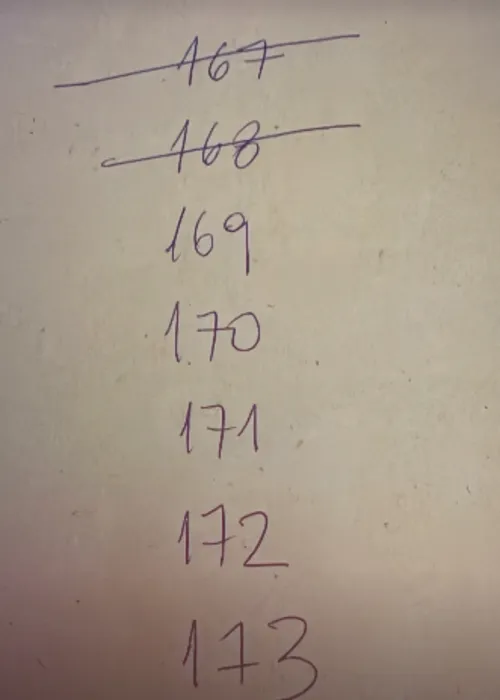 167
168
169
170
171
172
173